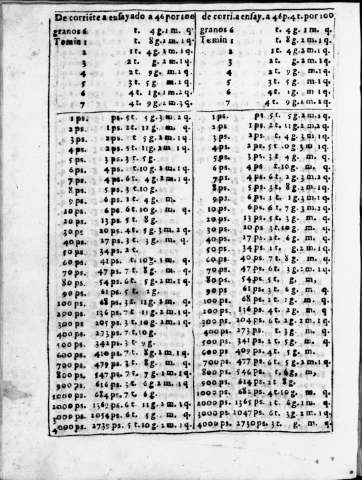 De corriẽte a ensayado a 46 por 100
granos 6 t. 4 g. 1 m. q.
Tomin 1 t. 8 g. 1 m. 1 q.
2 1 t. 4 g. 1 m. q.
3 2 t. g. 2 m. 1 q.
4 2 t. 9 g. m. 1 q.
5 3 t. 5 g. m. q.
6 4 t. 1 g. 1 m. 2 q.
7 4 t. 9 g. 2 m. 3 q.
1 ps. ps. 5 t. 5 g. 3 m. 2 q.
2 ps. 1 ps. 2 t. 11 g. m. q.
3 ps. 2 ps. t. 5 g. 1 m. 2 q.
4 ps. 2 ps. 5 t. 11 g. 2 m. 1 q.
5 ps. 3 ps. 3 t. 5 g.
6 ps. 4 ps. t. 10 g. 1 m. 1 q.
7 ps. 4 ps. 6 t. 4 g. 2 m. 1 q.
8 ps. 5 ps. 3 t. 10 g.
9 ps. 6 ps. 1 t. 4 g. m.
10 ps. 6 ps. 6 t. 10 g. m. q.
20 ps. 13 ps. 5 t. 8 g.
30 ps. 20 ps. 4 t. 5 g. 3 m. 2 q.
40 ps. 27 ps. 3 t. 3 g. m. q.
50 ps. 34 ps. 2 t.
60 ps. 41 ps. t. 10 g. 1 m. q.
70 ps. 47 ps. 7 t. 8 g. 1 m.
80 ps. 54 ps. 6 t. 5 g. 2 m. 1 q.
90 ps. 61 ps. 5 t. 2 g.
100 ps. 68 ps. 3 t. 11 g. 2 m. q.
200 ps. 136 ps. 7 t. 11 g. 2 m. 1 q.
300 ps. 205 ps. 3 t. 10 g. 2 m. 1 q.
400 ps. 273 ps. 7 t. 10 g.
500 ps. 342 ps. 3 t. 9 g.
600 ps. 410 ps. 7 t. 8 g. 1 m. 1 q.
700 ps. 479 ps. 3 t. 8 g. m. 1 q.
800 ps. 547 ps. 7 t. 7 g. 1 m. 1 q.
900 ps. 616 ps. 3 t. 6 g. 2 m. 1 q.
1000 ps. 684 ps. 7 t. 6 g.
2000 ps. 1369 ps. 6 t. 11 g. 2 m. 1 q.
3000 ps. 2054 ps. 6 t. 5 g. m. q.
4000 ps. 2739 ps. 5 t. 10 g. 2 m. 1 q.
de corri. a ensay. a 46 p. 4 t. por 100
granos 6 t. 4 g. 1 m. q.
Tomin 1 t. 8 g. 2 m. 1 q.
2 1 t. 4 g. 2 m. q.
3 2 t. g. 2 m. q.
4 2 t. 8 g. 3 m. 1 q.
5 3 t. 4 g. 3 m. 1 q.
6 4 t. 1 g. m. q.
7 4 t. 9 g. 1 m. 1 q.
1 ps. ps. 5 t. 5 g. 2 m. q.
2 ps. 1 ps. 2 t. 11 g. 2 m. q.
3 ps. 2 ps. t. 4 g. m. q.
4 ps. 2 ps. 5 t. 10 g. 3 m. q.
5 ps. 3 ps. 3 t. 4 g. m. q.
6 ps. 4 ps. t. 10 g. m. q.
7 ps. 4 ps. 6 t. 2 g. 3 m. 2 q.
8 ps. 5 ps. 3 t. 8 g. 1 m. 1 q.
9 ps. 6 ps. 1 t. 1 g. 3 m. 1 q.
10 ps. 6 ps. 6 t. 7 g. 3 m. 1 q.
20 ps. 13 ps. 5 t. 3 g. m. q.
30 ps. 20 ps. 3 t. 10 g. m. q.
40 ps. 27 ps. 2 t. 6 g. m. q.
50 ps. 34 ps. 1 t. g. 2 m. 1 q.
60 ps. 40 ps. 7 t. 8 g. m. q.
70 ps. 47 ps. 6 t. 3 g. 1 m. 1 q.
80 ps. 54 ps. 5 t. g, m,
90 ps. 61 ps. 3 t. 6 g. m. q.
100 ps. 68 ps. 2 t. 1 g. 1 m. q.
200 ps. 136 ps. 4 t. 2 g. m. q.
300 ps. 204 ps. 6 t. 2 g. 2 m. 1 q.
400 ps. 273 ps. t. 3 g. m. q.
500 ps. 341 ps. 2 t. 5 g. m. q.
600 ps. 409 ps. 4 t. 5 g. m.
700 ps. 477 ps. 6 t. 5 g. 2 m. 1 q.
800 ps. 546 ps. t. 6 g, m,
900 ps. 614 ps. 2 t. 8 g.
1000 ps. 682 ps. 4 t. 10 g. m. q.
2000 ps. 1365 ps. 1 t. 6 g. 2 m. 1 q.
3000 ps. 2047 ps. 6 t. 3 g. 2 m. 1 q.
4000 ps. 2730 ps. 3 t. g. m. q.